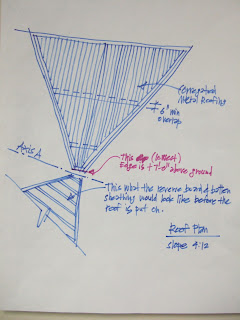 Corrugated
Metal Roofing
6" min
overlap
Axis A
This (lowest)
Edge is + 7'-0" above ground
This what the reverse board & batten
sheathing would look like before the
roof is put on.
Roof Plan
slope 4:12